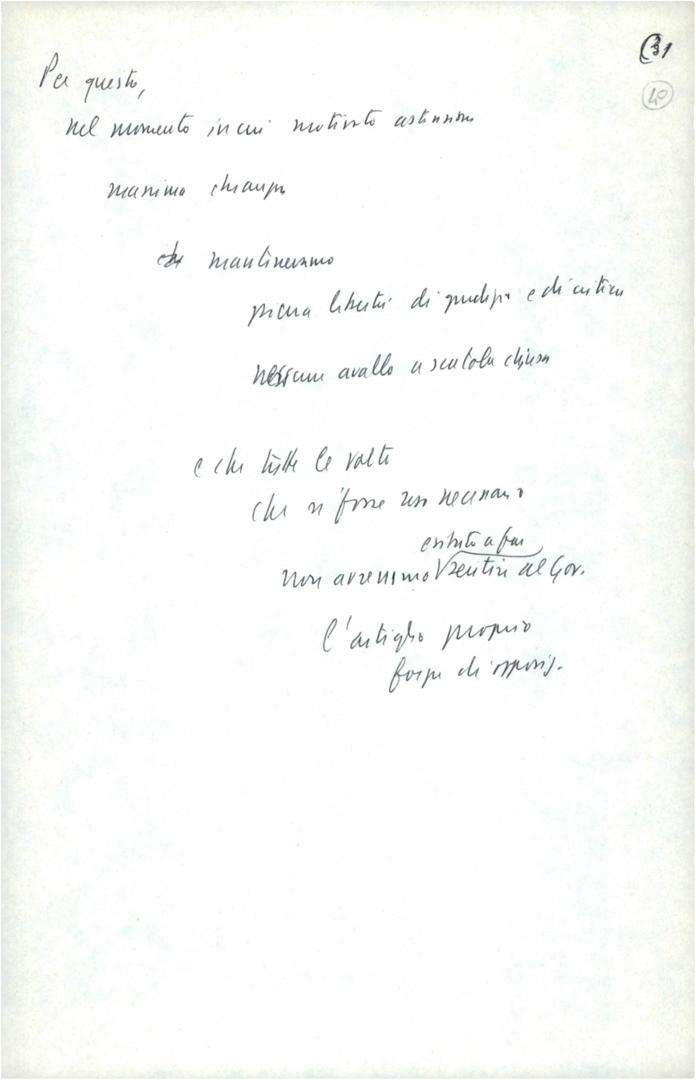 31
40
Per questo,
nel momento in cui motivato astensione
massima chiarezza
che mantenevamo
piena libertà di giudizio e di critica
nessun avallo a scatola chiusa
e che tutte le volte
che si fosse reso necessario
esitato a far
non avremmo sentire al Gov.
l'artiglio proprio
forza di opposiz.